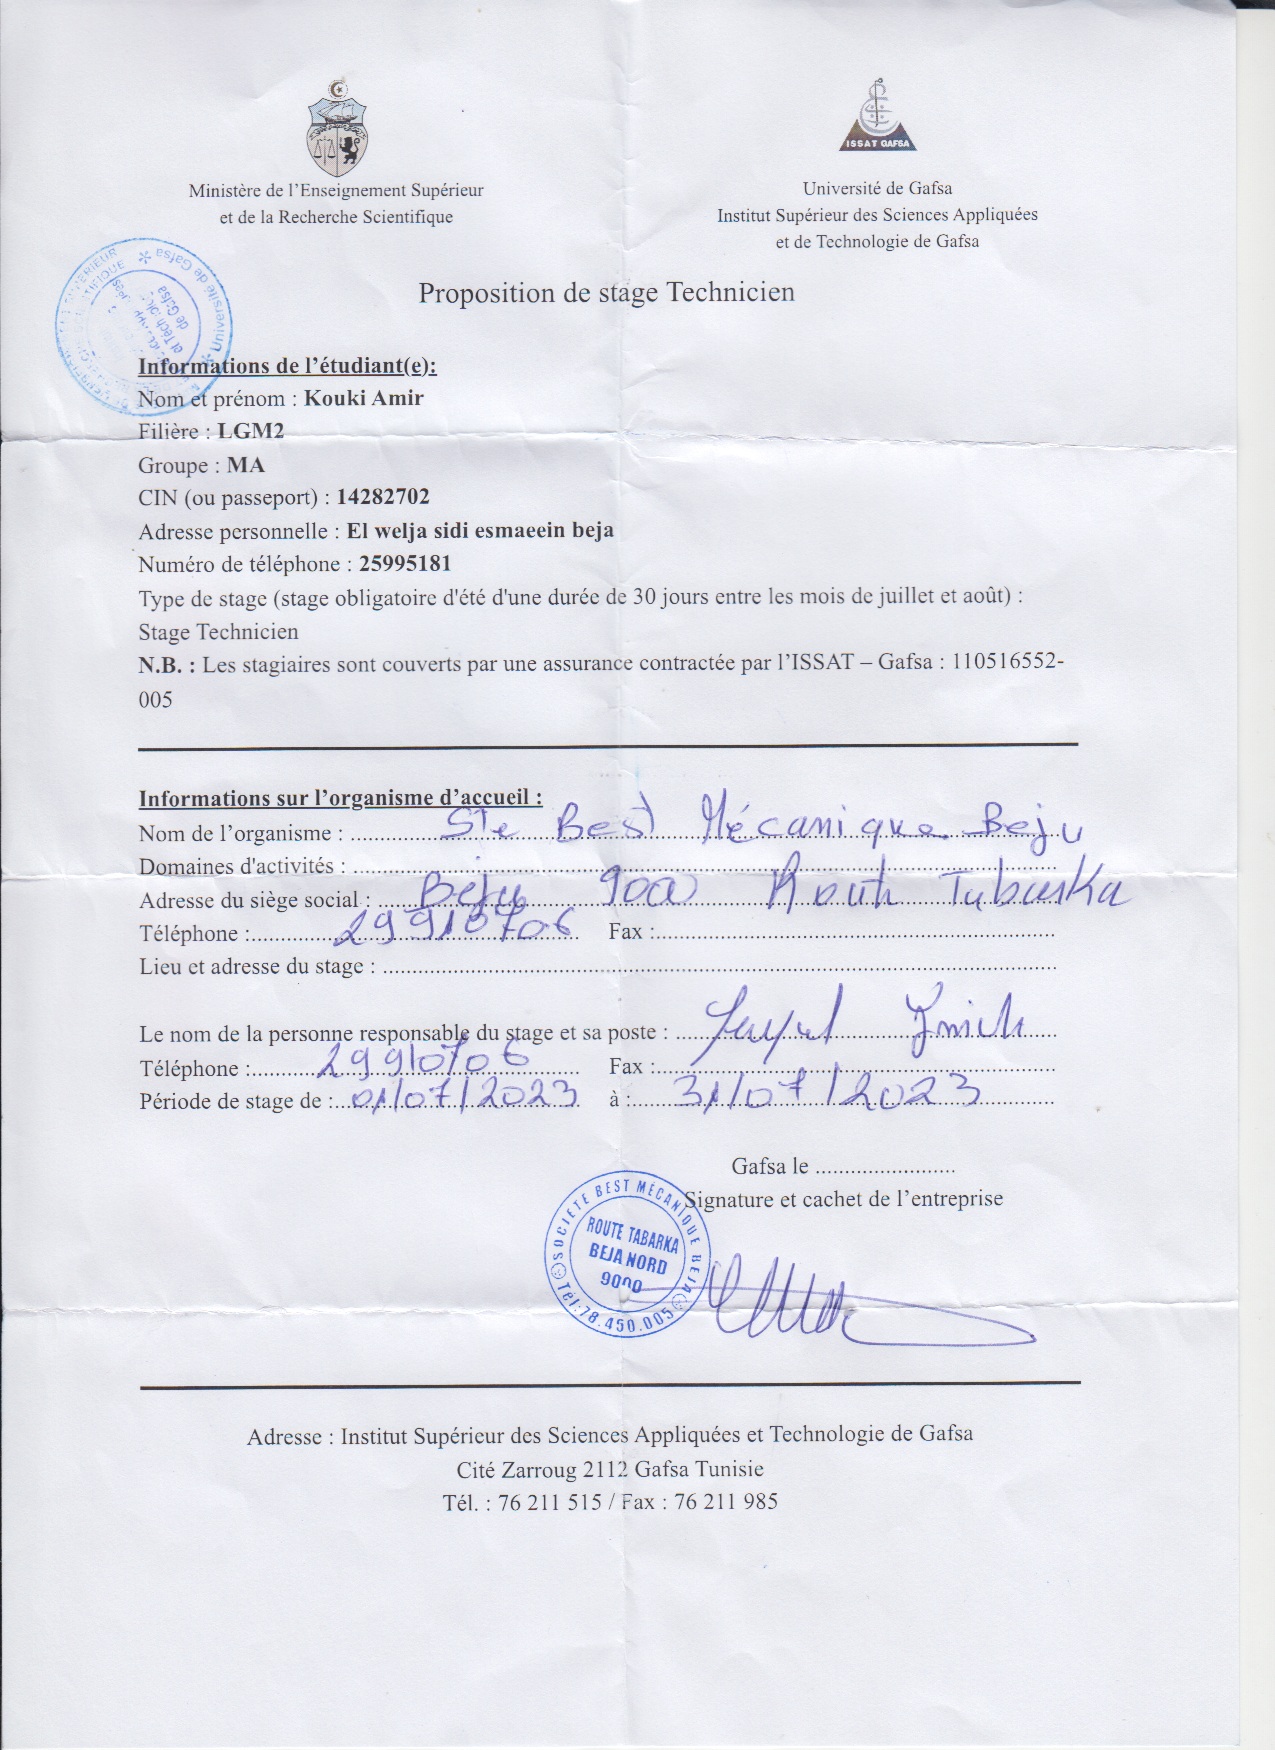 ISSAT GAFSA
Ministère de l'Enseignement Supérieur
et de la Recherche Scientifique
Université de Gafsa
Institut Supérieur des Sciences Appliquées
et de Technologie de Gafsa
Université de Gafsa
et Technologie
de Gafsa
Proposition de stage Technicien
Informations de l'étudiant(e):
Nom et prénom : Kouki Amir
Filière : LGM2
Groupe : MA
CIN (ou passeport) : 14282702
Adresse personnelle : El welja sidi esmaeein beja
Numéro de téléphone : 25995181
Type de stage (stage obligatoire d'été d'une durée de 30 jours entre les mois de juillet et août) :
Stage Technicien
N.B. : Les stagiaires sont couverts par une assurance contractée par l'ISSAT – Gafsa : 110516552-
005
Informations sur l'organisme d'accueil :
Nom de l'organisme : Ste Best Mécanique Beja
Domaines d'activités :
Adresse du siège social : Beja 9000 Route Tabarka
Téléphone : 29910706 Fax :
Lieu et adresse du stage :
Le nom de la personne responsable du stage et sa poste :
Téléphone : 29910706 Fax :
Période de stage de : 01/07/2023 à : 31/07/2023
Gafsa le ........................
Signature et cachet de l'entreprise
SOCIETE BEST MÉCANIQUE BEJA
ROUTE TABARKA
BEJA NORD
9000
Tél:78.450.005
Adresse : Institut Supérieur des Sciences Appliquées et Technologie de Gafsa
Cité Zarroug 2112 Gafsa Tunisie
Tél. : 76 211 515 / Fax : 76 211 985